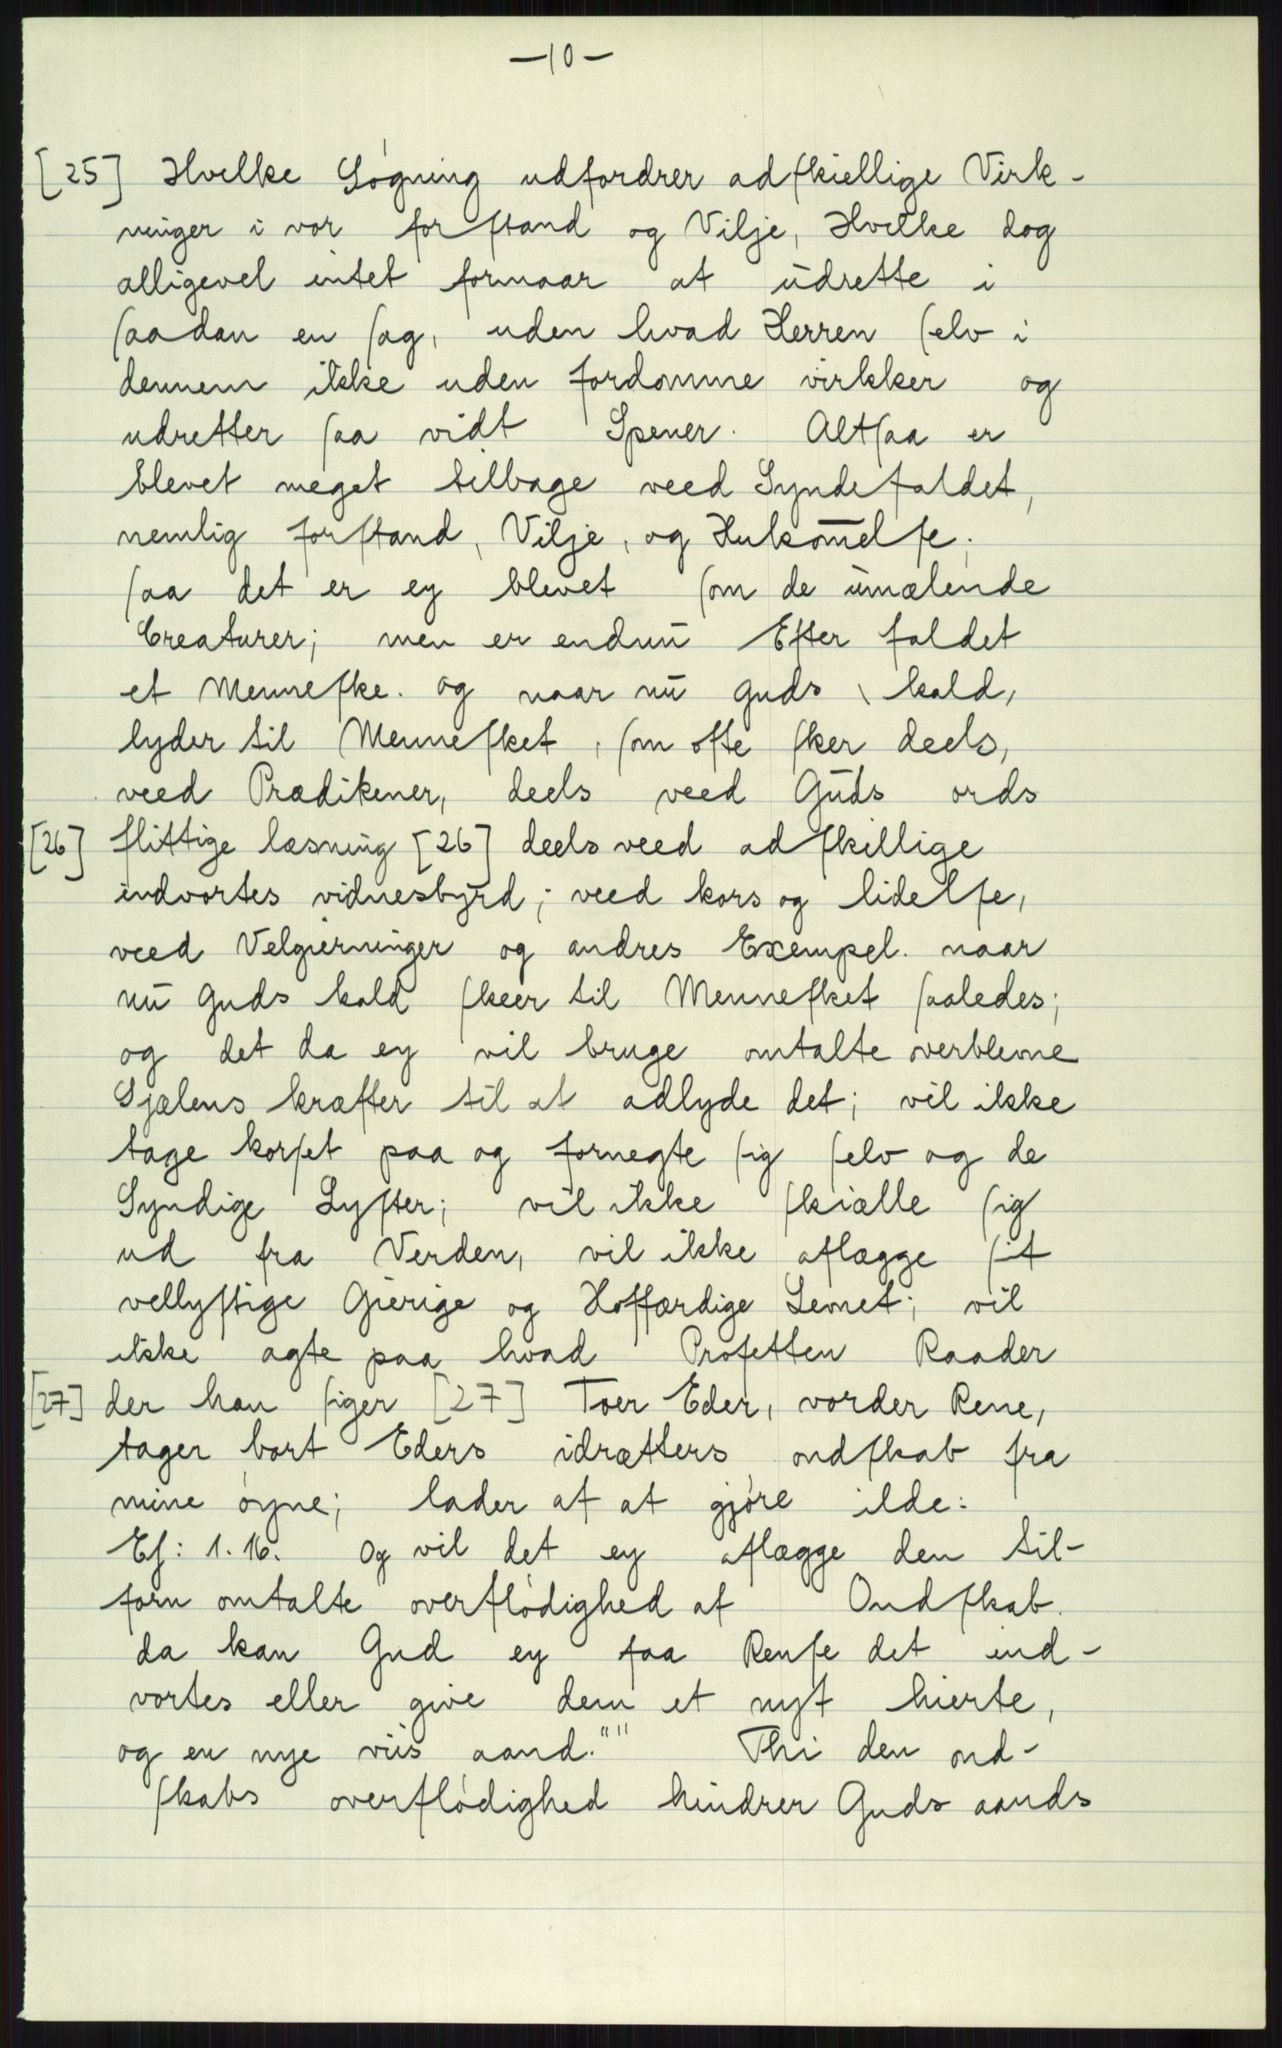 —10—
[25] Hvilke Søgning udfordrer adſkiellige Virk-
ninger i vor forſtand og Vilje, Hvilke dog
alligevel intet formaar at ūdrette i
ſaadan en ſag, uden hvad Herren ſelv i
dennem ikke uden fordomme virkker og
udretter ſaa vidt Spener. Altſaa er
blevet meget tilbage veed Syndefaldet,
nemlig forſtand, Vilje, og Hukom̅elſe.
ſaa det er ey blevet ſom de ūmælende
Creaturer; men er endnū Efter faldet
et Menneſke. og naar nū Guds kald,
lyder til Menneſket, ſom ofte ſker deels,
veed Prædikener, deels veed Gūds ords
[26] flittige læsning [26] deels veed adſkillige
indvortes vidnesbyrd; veed kors og lidelſe,
veed Velgierninger og andres Exempel. naar
nū Guds kald ſkeer til Menneſket ſaaledes;
og det da ey vil bruge omtalte overblevne
Sjælens kræfter til at adlyde det; vil ikke
tage korſet paa og fornegte ſig ſelv og de
Syndige Lyſter; vil ikke ſkiælle ſig
ud fra Verden, vil ikke aflægge ſit
vellyſtige Gierige og Hoffærdige Levnet; vil
ikke agte paa hvad Profetten Raader
[27] der han ſiger [27] Toer Eder, vorder Rene,
tager bort Eders idrætters ondſkab fra
mine øyne; lader af at gjøre ilde:
Eſ: 1. 16. Og vil det ey aflægge den til-
forn omtalte overflødighed af Ondſkab.
da kan Gud ey faa Renſe det ind-
vortes eller give dem et nyt hierte,
og en nye viis aand."" Thi den ond-
ſkabs overflødighed hindrer Guds aands